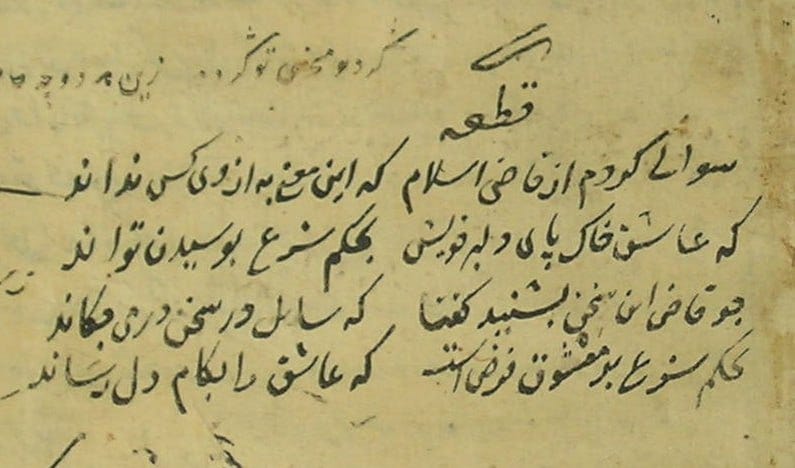 قطعه
سوالے کردم از قاضی اسلام که این معنے به از وی کس نداند
که عاشق خاک پای دلبر خویش بحکم شرع بوسیدن تواند
چو قاضی این سخن بشنید گفتا که سایل در سخن دری چکاند
بحکم شرع بر معشوق فرض است که عاشق را بکام دل رساند